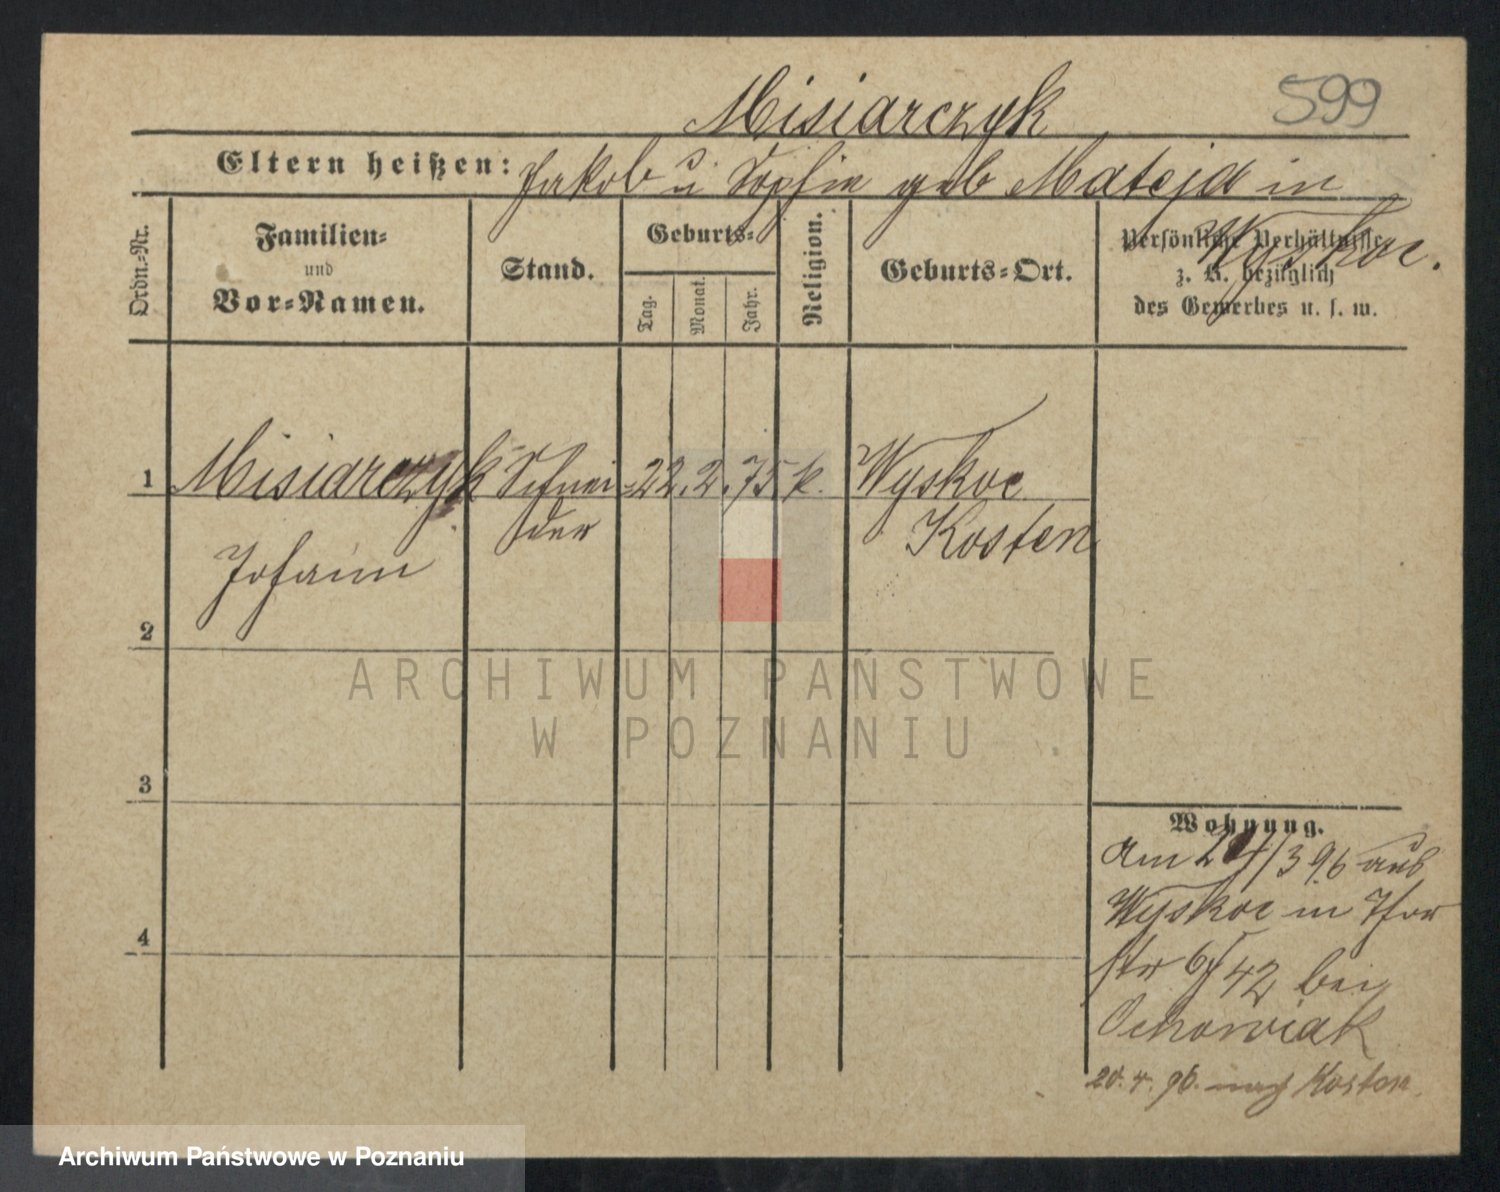 599
Misiarczyk
Eltern heißen: Jakob u Sophie geb Mateja in
Wyskoc.
Ordn.-Nr.
Familien-
und
Vor-Namen.
Stand.
Geburts-
Tag.
Monat.
Jahr.
Religion.
Geburts-Ort.
Persönliche Verhältnisse
z. B. bezüglich
des Gewerbes u. s. w.
1 Misiarczyk Schnei- 22. 2. 75 k. Wyskoc
der Kosten
Johann
2
ARCHIWUM PAŃSTWOWE
W POZNANIU
3
4
Wohnung.
Am 24/3 96 aus
Wyskoc in Thor
str 42 bei
Ochowiak
20. 4. 96. nach Kosten
Archiwum Państwowe w Poznaniu